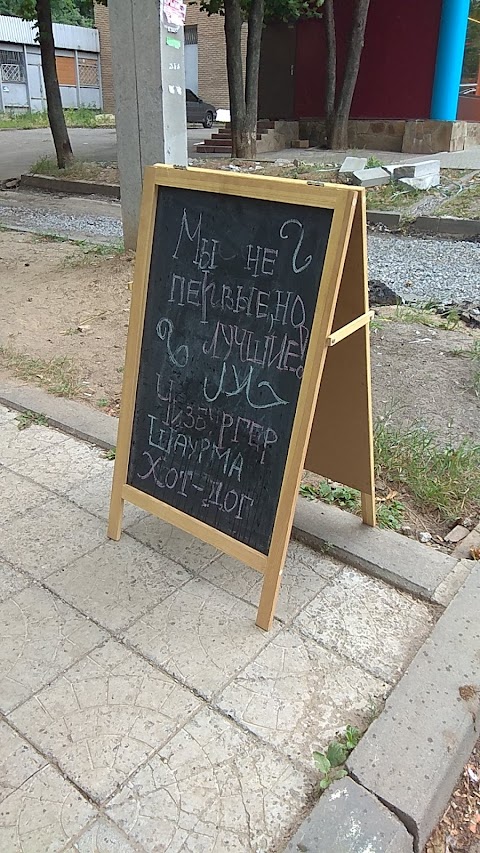 Мы не
первые, но
лучшие!
Чизбургер
Шаурма
Хот-дог